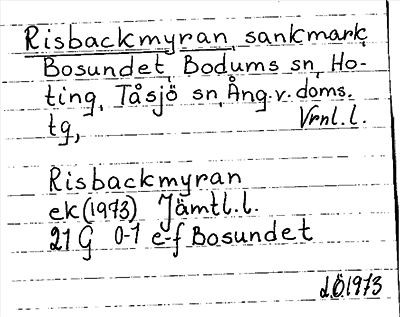 Risbackmyran, sankmark,
Bosundet, Bodums sn, Ho-
ting, Tåsjö sn, Ång.v. doms.
tg, Vrnl. l.
Risbackmyran
ek (1973) Jämtl. l.
21 G 0-1 e-f Bosundet
d.Ö.1973